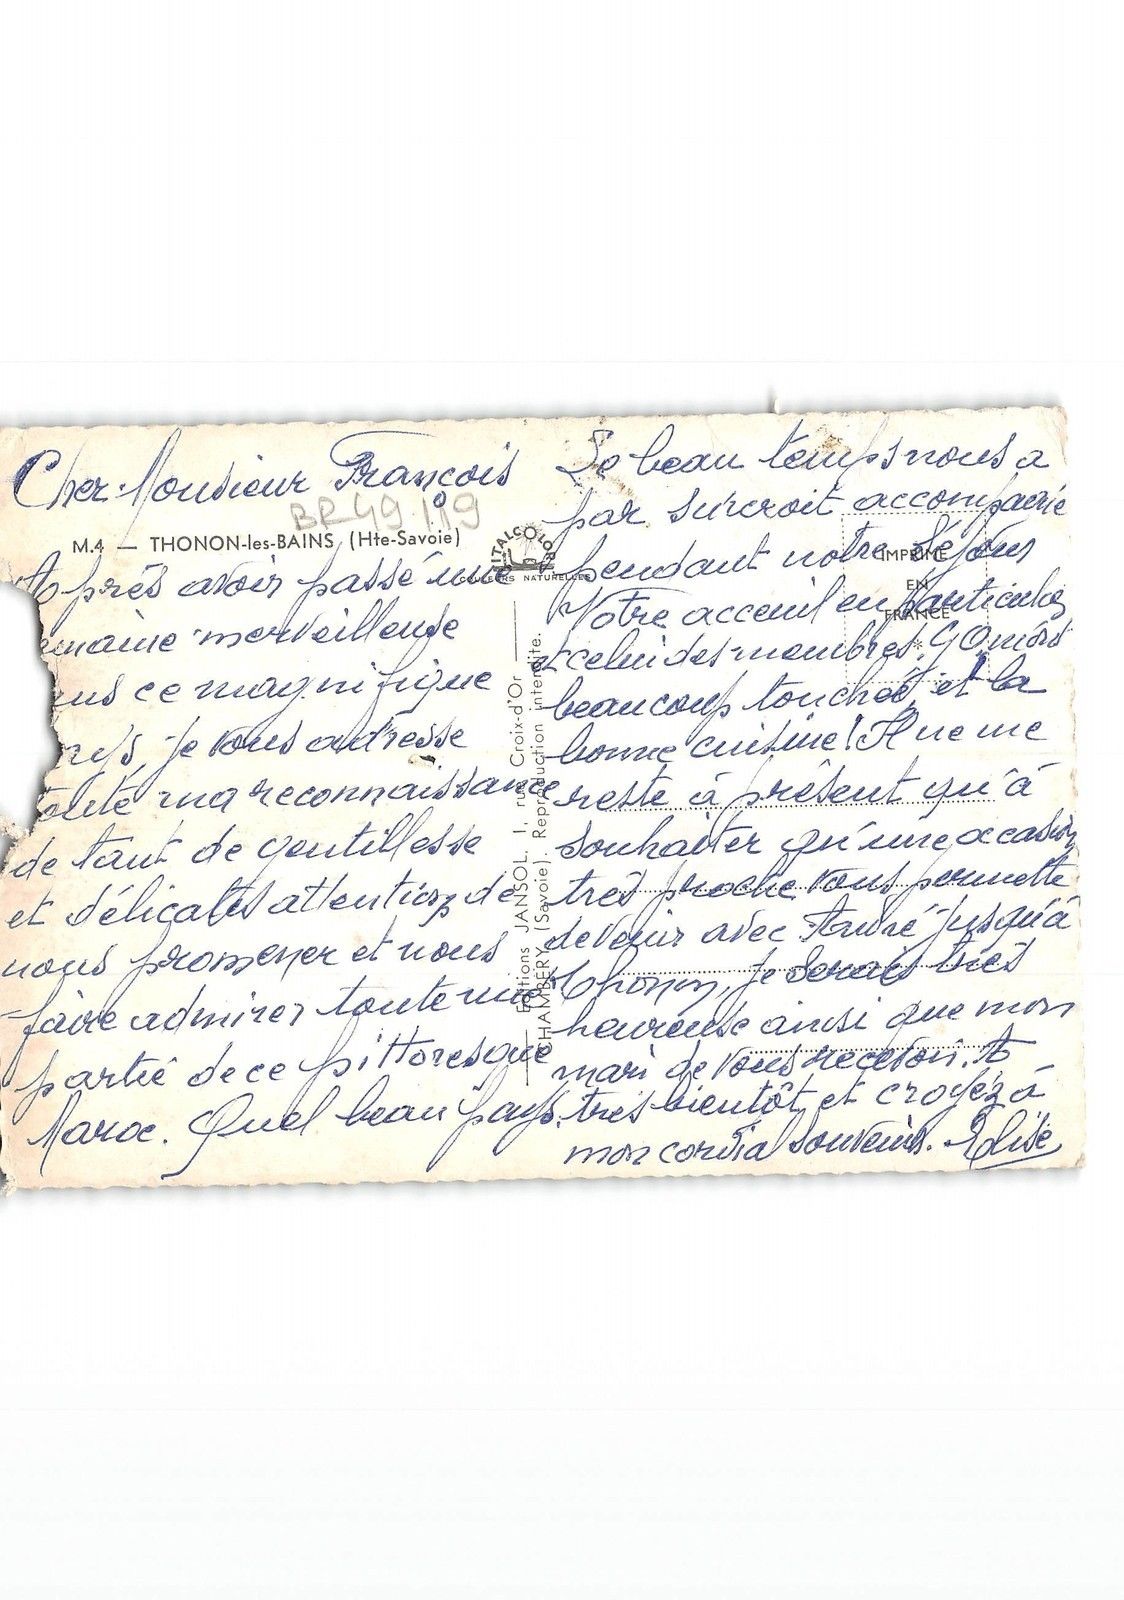 Cher Monsieur François
BR49 119
M.4 — THONON-les-BAINS (Hte-Savoie)
Après avoir passé une
emaine merveilleuse
ns ce magnifique
ys, je vous adresse
toute ma reconnaissance
de tant de gentillesse
et délicates attentions de
nous promener et nous
faire admirer toute une
partie de ce pittoresque
Maroc. Quel beau pays.
ITALCOLOR
COULEURS NATURELLES
Editions JANSOL. 1, rue Croix-d'Or
CHAMBÉRY (Savoie). Reproduction interdite.
IMPRIMÉ
EN
FRANCE
*
Le beau temps nous a
par surcroit accompagné
pendant notre Séjour
Votre acceuil en particulier
et celui des membres m'ont
beaucoup touchée, et la
bonne cuisine! Il ne me
reste à présent qu'à
souhaiter qu'une occasion
très proche vous permette
de venir avec André jusqu'à
Thonon, je serais très
heureuse ainsi que mon
mari de vous recevoir. A
très bientôt et croyez à
mon cordia souvenir. Elise